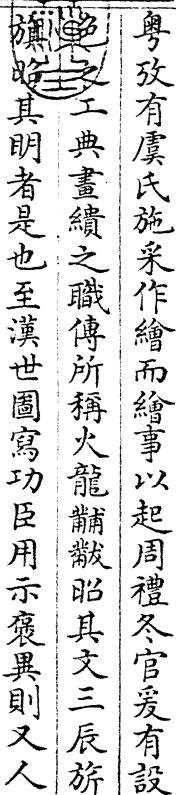 粵攷有虞氏施采作繪而繪事以起周禮冬官爰有設
色之工典畫繢之職傳所稱火龍黼黻昭其文三辰旂
旗昭其明者是也至漢世圖寫功臣用示褒異則又人